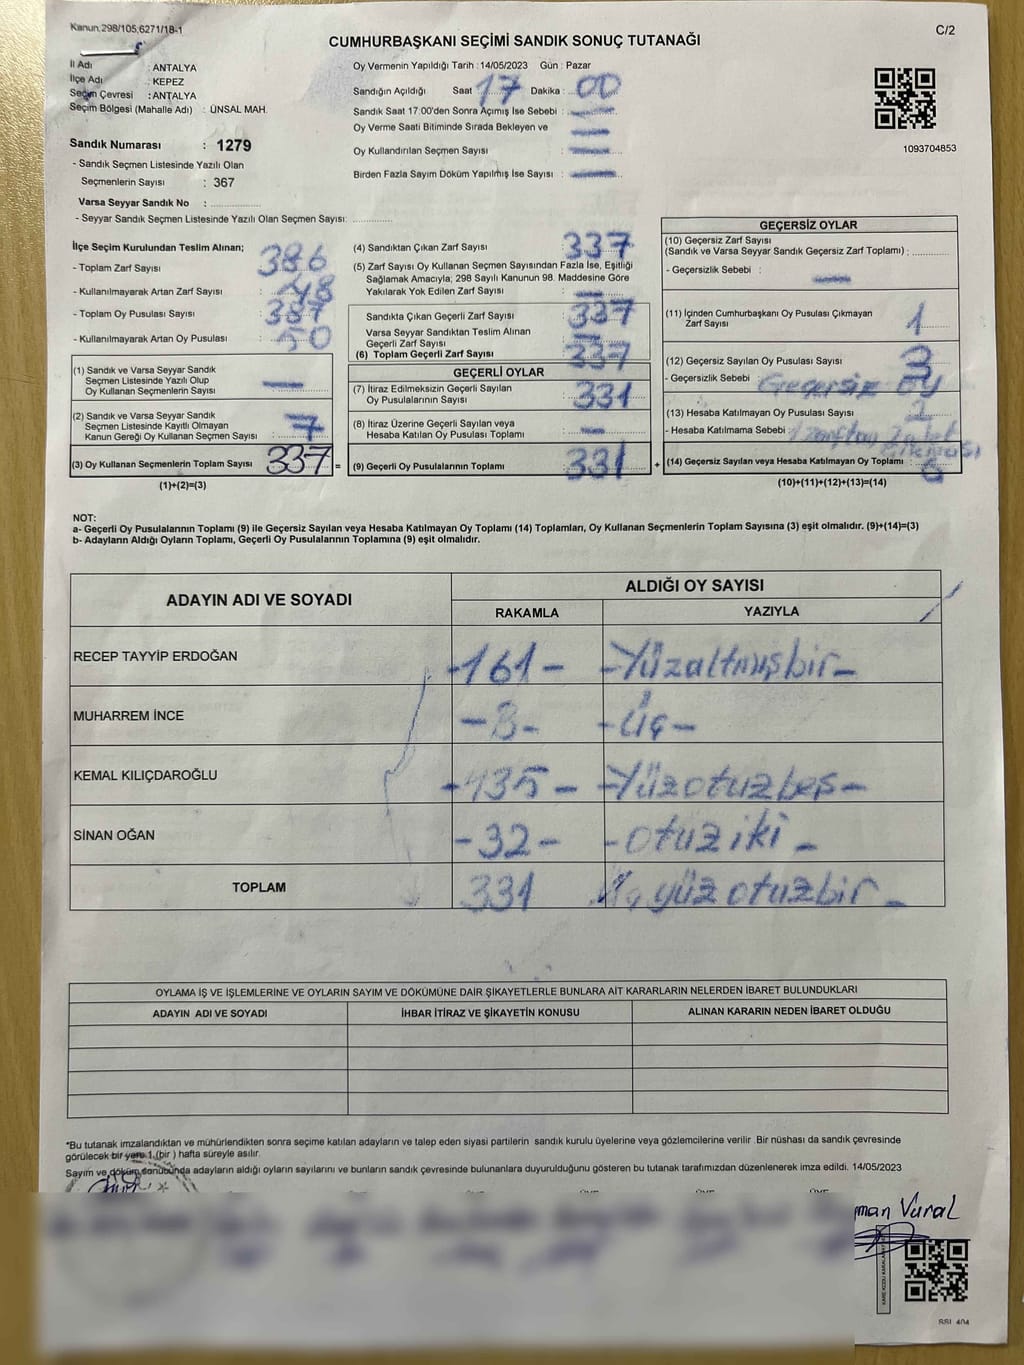 Kanun.298/105,6271/18-1
C/2
CUMHURBAŞKANI SEÇİMİ SANDIK SONUÇ TUTANAĞI
İl Adı : ANTALYA
İlçe Adı : KEPEZ
Seçim Çevresi : ANTALYA
Seçim Bölgesi (Mahalle Adı) : ÜNSAL MAH.
Oy Vermenin Yapıldığı Tarih : 14/05/2023 Gün : Pazar
Sandığın Açıldığı Saat : 17 Dakika : 00
Sandık Saat 17.00'den Sonra Açımış İse Sebebi :
Oy Verme Saati Bitiminde Sırada Bekleyen ve
Oy Kullandırılan Seçmen Sayısı :
Birden Fazla Sayım Döküm Yapılmış İse Sayısı :
1093704853
Sandık Numarası : 1279
- Sandık Seçmen Listesinde Yazılı Olan
Seçmenlerin Sayısı : 367
Varsa Seyyar Sandık No :
- Seyyar Sandık Seçmen Listesinde Yazılı Olan Seçmen Sayısı:
İlçe Seçim Kurulundan Teslim Alınan;
- Toplam Zarf Sayısı : 386
- Kullanılmayarak Artan Zarf Sayısı :
- Toplam Oy Pusulası Sayısı : 387
- Kullanılmayarak Artan Oy Pusulası : 50
(1) Sandık ve Varsa Seyyar Sandık
Seçmen Listesinde Yazılı Olup
Oy Kullanan Seçmenlerin Sayısı :
(2) Sandık ve Varsa Seyyar Sandık
Seçmen Listesinde Kayıtlı Olmayan
Kanun Gereği Oy Kullanan Seçmen Sayısı : 7
(3) Oy Kullanan Seçmenlerin Toplam Sayısı 337 =
(1)+(2)=(3)
(4) Sandıktan Çıkan Zarf Sayısı : 337
(5) Zarf Sayısı Oy Kullanan Seçmen Sayısından Fazla İse, Eşitliği
Sağlamak Amacıyla; 298 Sayılı Kanunun 98. Maddesine Göre
Yakılarak Yok Edilen Zarf Sayısı :
Sandıkta Çıkan Geçerli Zarf Sayısı : 337
Varsa Seyyar Sandıktan Teslim Alınan
Geçerli Zarf Sayısı :
(6) Toplam Geçerli Zarf Sayısı : 337
GEÇERLİ OYLAR
(7) İtiraz Edilmeksizin Geçerli Sayılan
Oy Pusulalarının Sayısı : 331
(8) İtiraz Üzerine Geçerli Sayılan veya
Hesaba Katılan Oy Pusulası Toplamı :
(9) Geçerli Oy Pusulalarının Toplamı : 331 +
GEÇERSİZ OYLAR
(10) Geçersiz Zarf Sayısı
(Sandık ve Varsa Seyyar Sandık Geçersiz Zarf Toplamı) :
- Geçersizlik Sebebi :
(11) İçinden Cumhurbaşkanı Oy Pusulası Çıkmayan
Zarf Sayısı : 1
(12) Geçersiz Sayılan Oy Pusulası Sayısı : 3
- Geçersizlik Sebebi : Geçersiz oy
(13) Hesaba Katılmayan Oy Pusulası Sayısı : 2
- Hesaba Katılmama Sebebi :
(14) Geçersiz Sayılan veya Hesaba Katılmayan Oy Toplamı : 6
(10)+(11)+(12)+(13)=(14)
NOT:
a- Geçerli Oy Pusulalarının Toplamı (9) ile Geçersiz Sayılan veya Hesaba Katılmayan Oy Toplamı (14) Toplamları, Oy Kullanan Seçmenlerin Toplam Sayısına (3) eşit olmalıdır. (9)+(14)=(3)
b- Adayların Aldığı Oyların Toplamı, Geçerli Oy Pusulalarının Toplamına (9) eşit olmalıdır.
ADAYIN ADI VE SOYADI ALDIĞI OY SAYISI
RAKAMLA YAZIYLA
RECEP TAYYİP ERDOĞAN -161- -Yüzaltmışbir-
MUHARREM İNCE -3- -Üç-
KEMAL KILIÇDAROĞLU -135- -Yüzotuzbeş-
SİNAN OĞAN -32- -otuziki-
TOPLAM 331 Üçyüzotuzbir-
OYLAMA İŞ VE İŞLEMLERİNE VE OYLARIN SAYIM VE DÖKÜMÜNE DAİR ŞİKAYETLERLE BUNLARA AİT KARARLARIN NELERDEN İBARET BULUNDUKLARI
ADAYIN ADI VE SOYADI İHBAR İTİRAZ VE ŞİKAYETİN KONUSU ALINAN KARARIN NEDEN İBARET OLDUĞU
*Bu tutanak imzalandıktan ve mühürlendikten sonra seçime katılan adayların ve talep eden siyasi partilerin sandık kurulu üyelerine veya gözlemcilerine verilir .Bir nüshası da sandık çevresinde
görülecek bir yere 1 (bir ) hafta süreyle asılır.
Sayım ve döküm sonubunda adayların aldığı oyların sayılarını ve bunların sandık çevresinde bulunanlara duyurulduğunu gösteren bu tutanak tarafımızdan düzenlenerek imza edildi. 14/05/2023
man Vural